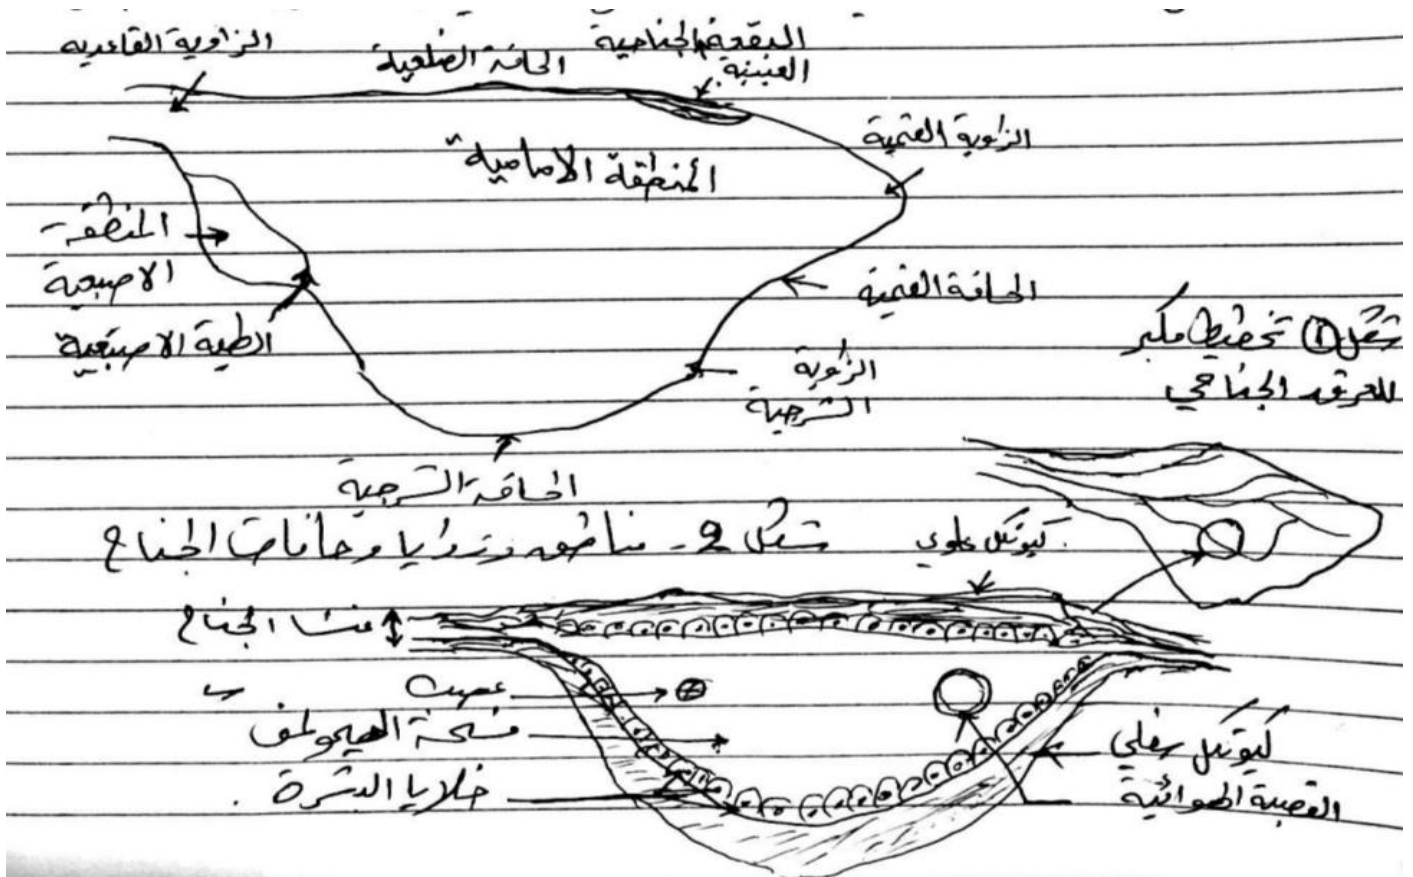 الزاوية القاعدية
الحافة الضلعية
البقعة الجناحية
العينية
الزاوية القمية
المنطقة الامامية
المنطقة
الاصبعية
الطية الاصبعية
الحافة القمية
الزاوية
الشرجية
الحافة الشرجية
شكل ① تخطيط مكبر
للعرق الجناحي
شكل 2- مناطق وزوايا وحافات الجناح
كيوتكل علوي
غشاء الجناح
عصب
فسحة الهيمولمف
خلايا البشرة
كيوتكل سفلي
القصبة الهوائية